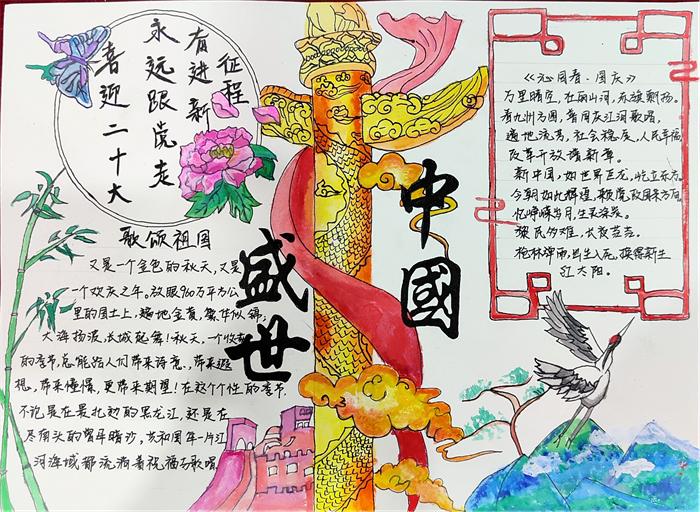 喜迎二十大
永远跟党走
有进新
征程
盛世
中國
歌颂祖国
又是一个金色的秋天,又是
一个欢庆之年。放眼960万平方公
里的国土上,遍地金黄,繁华似锦,
大海扬波,长城起舞!秋天,一个收获
的季节,总能给人们带来诗意,带来遐
想,带来憧憬,更带来期望!在这个个性的季节,
不论是在最北边的黑龙江,还是在
尽南头的曾母暗沙,共和国每一片江
河海域都流淌着祝福与歌唱
《沁园春·国庆》
万里晴空,壮丽山河,赤旗飘扬。
看九州方圆,普同庆江河歌唱,
遍地流芳,社会稳定,人民幸福,
改革开放谱新章。
新中国,如世界巨龙,屹立东方。
今朝如此辉煌,赖党政国策方向。
忆峥嵘岁月,生灵涂炭。
族民多难,长夜茫茫。
枪林弹雨,出生入死,换得新生
红太阳。